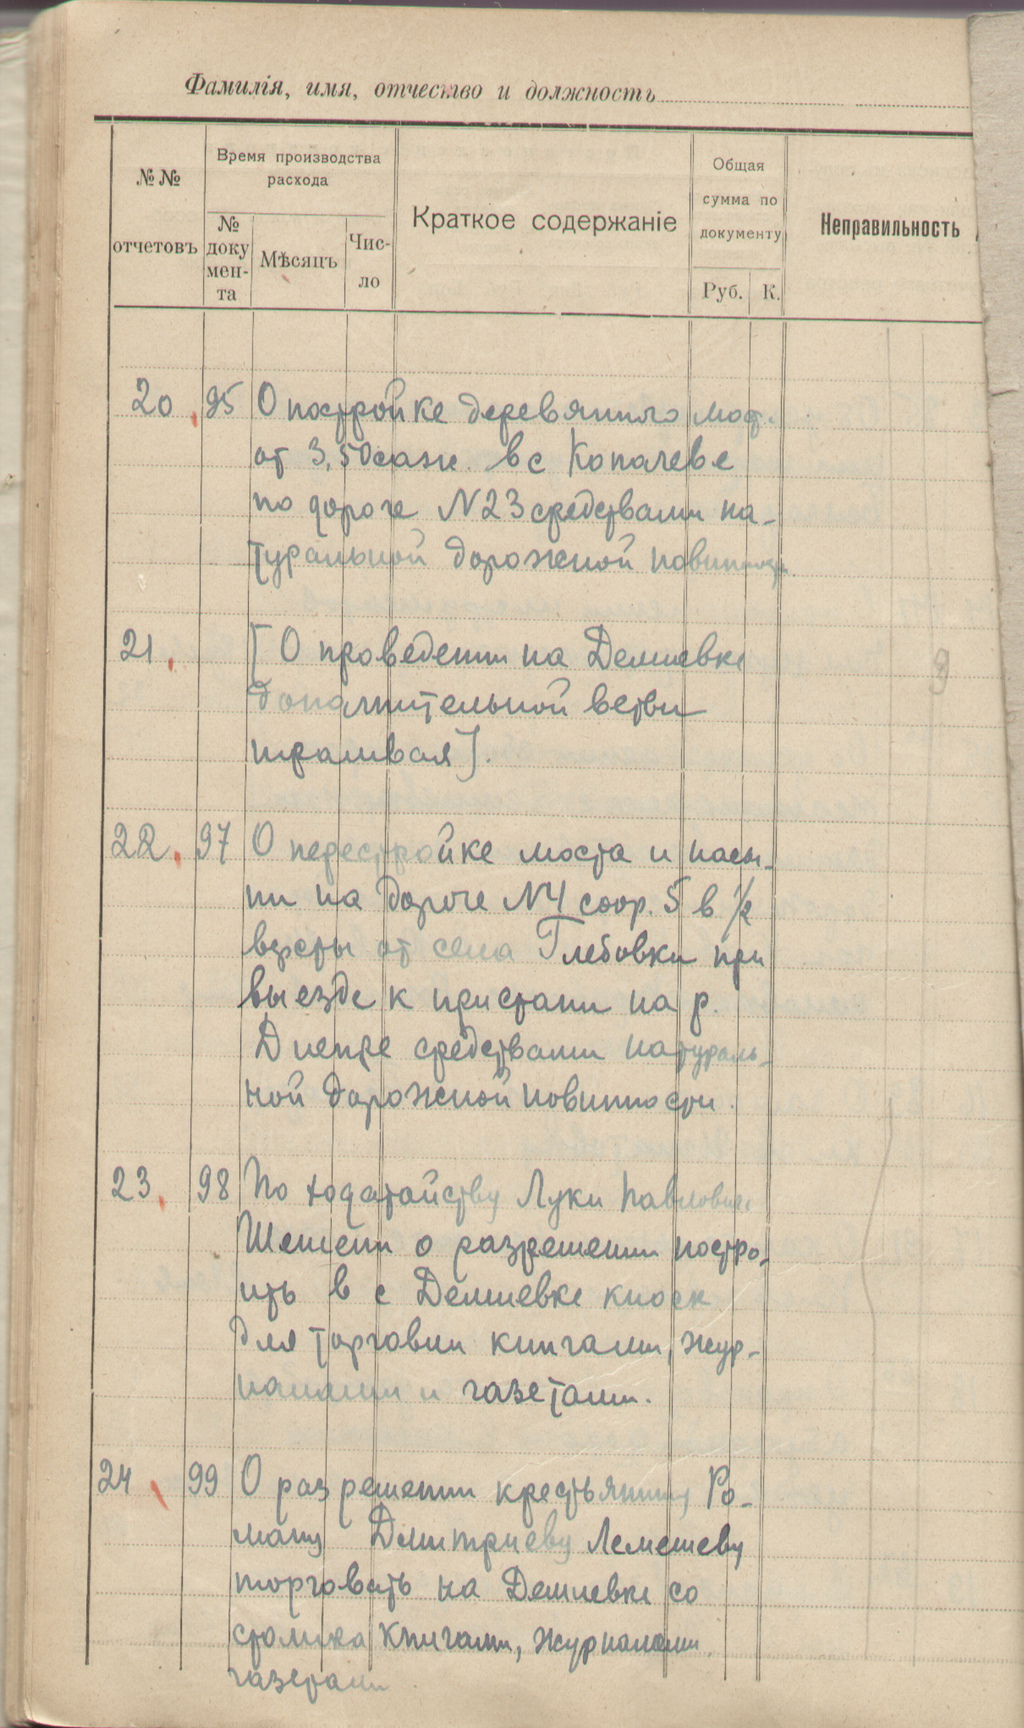 Фамилія, имя, отчество и должность
№№ отчетовъ
Время производства расхода
№ доку мен- та
Мѣсяцъ
Чис- ло
Краткое содержаніе
Общая сумма по документу
Руб. К.
Неправильность
20 95 О постройке деревянного мост.
от 3,50 саж. в с Копачеве
по дороге N23 средствами на-
туральной дорожной повинност.
21. [О проведении на Демиевке
дополнительной ветви
трамвая].
22. 97 О перестройке моста и насы-
пи на дороге N4 соор. 5 в 1/2
версты от села Глебовки при
выезде к пристани на р.
Днепре средствами натураль-
ной дорожной повинности.
23. 98 По ходатайству Луки Павлович
о разрешении постро-
ить в с Демиевке киоск
для торговли книгами, жур-
налами и газетами.
24 99 О разрешении крестьянину Ро-
ману Дмитриеву Лемешеву
торговать на Демиевке со
столика книгами, журналами
газетами